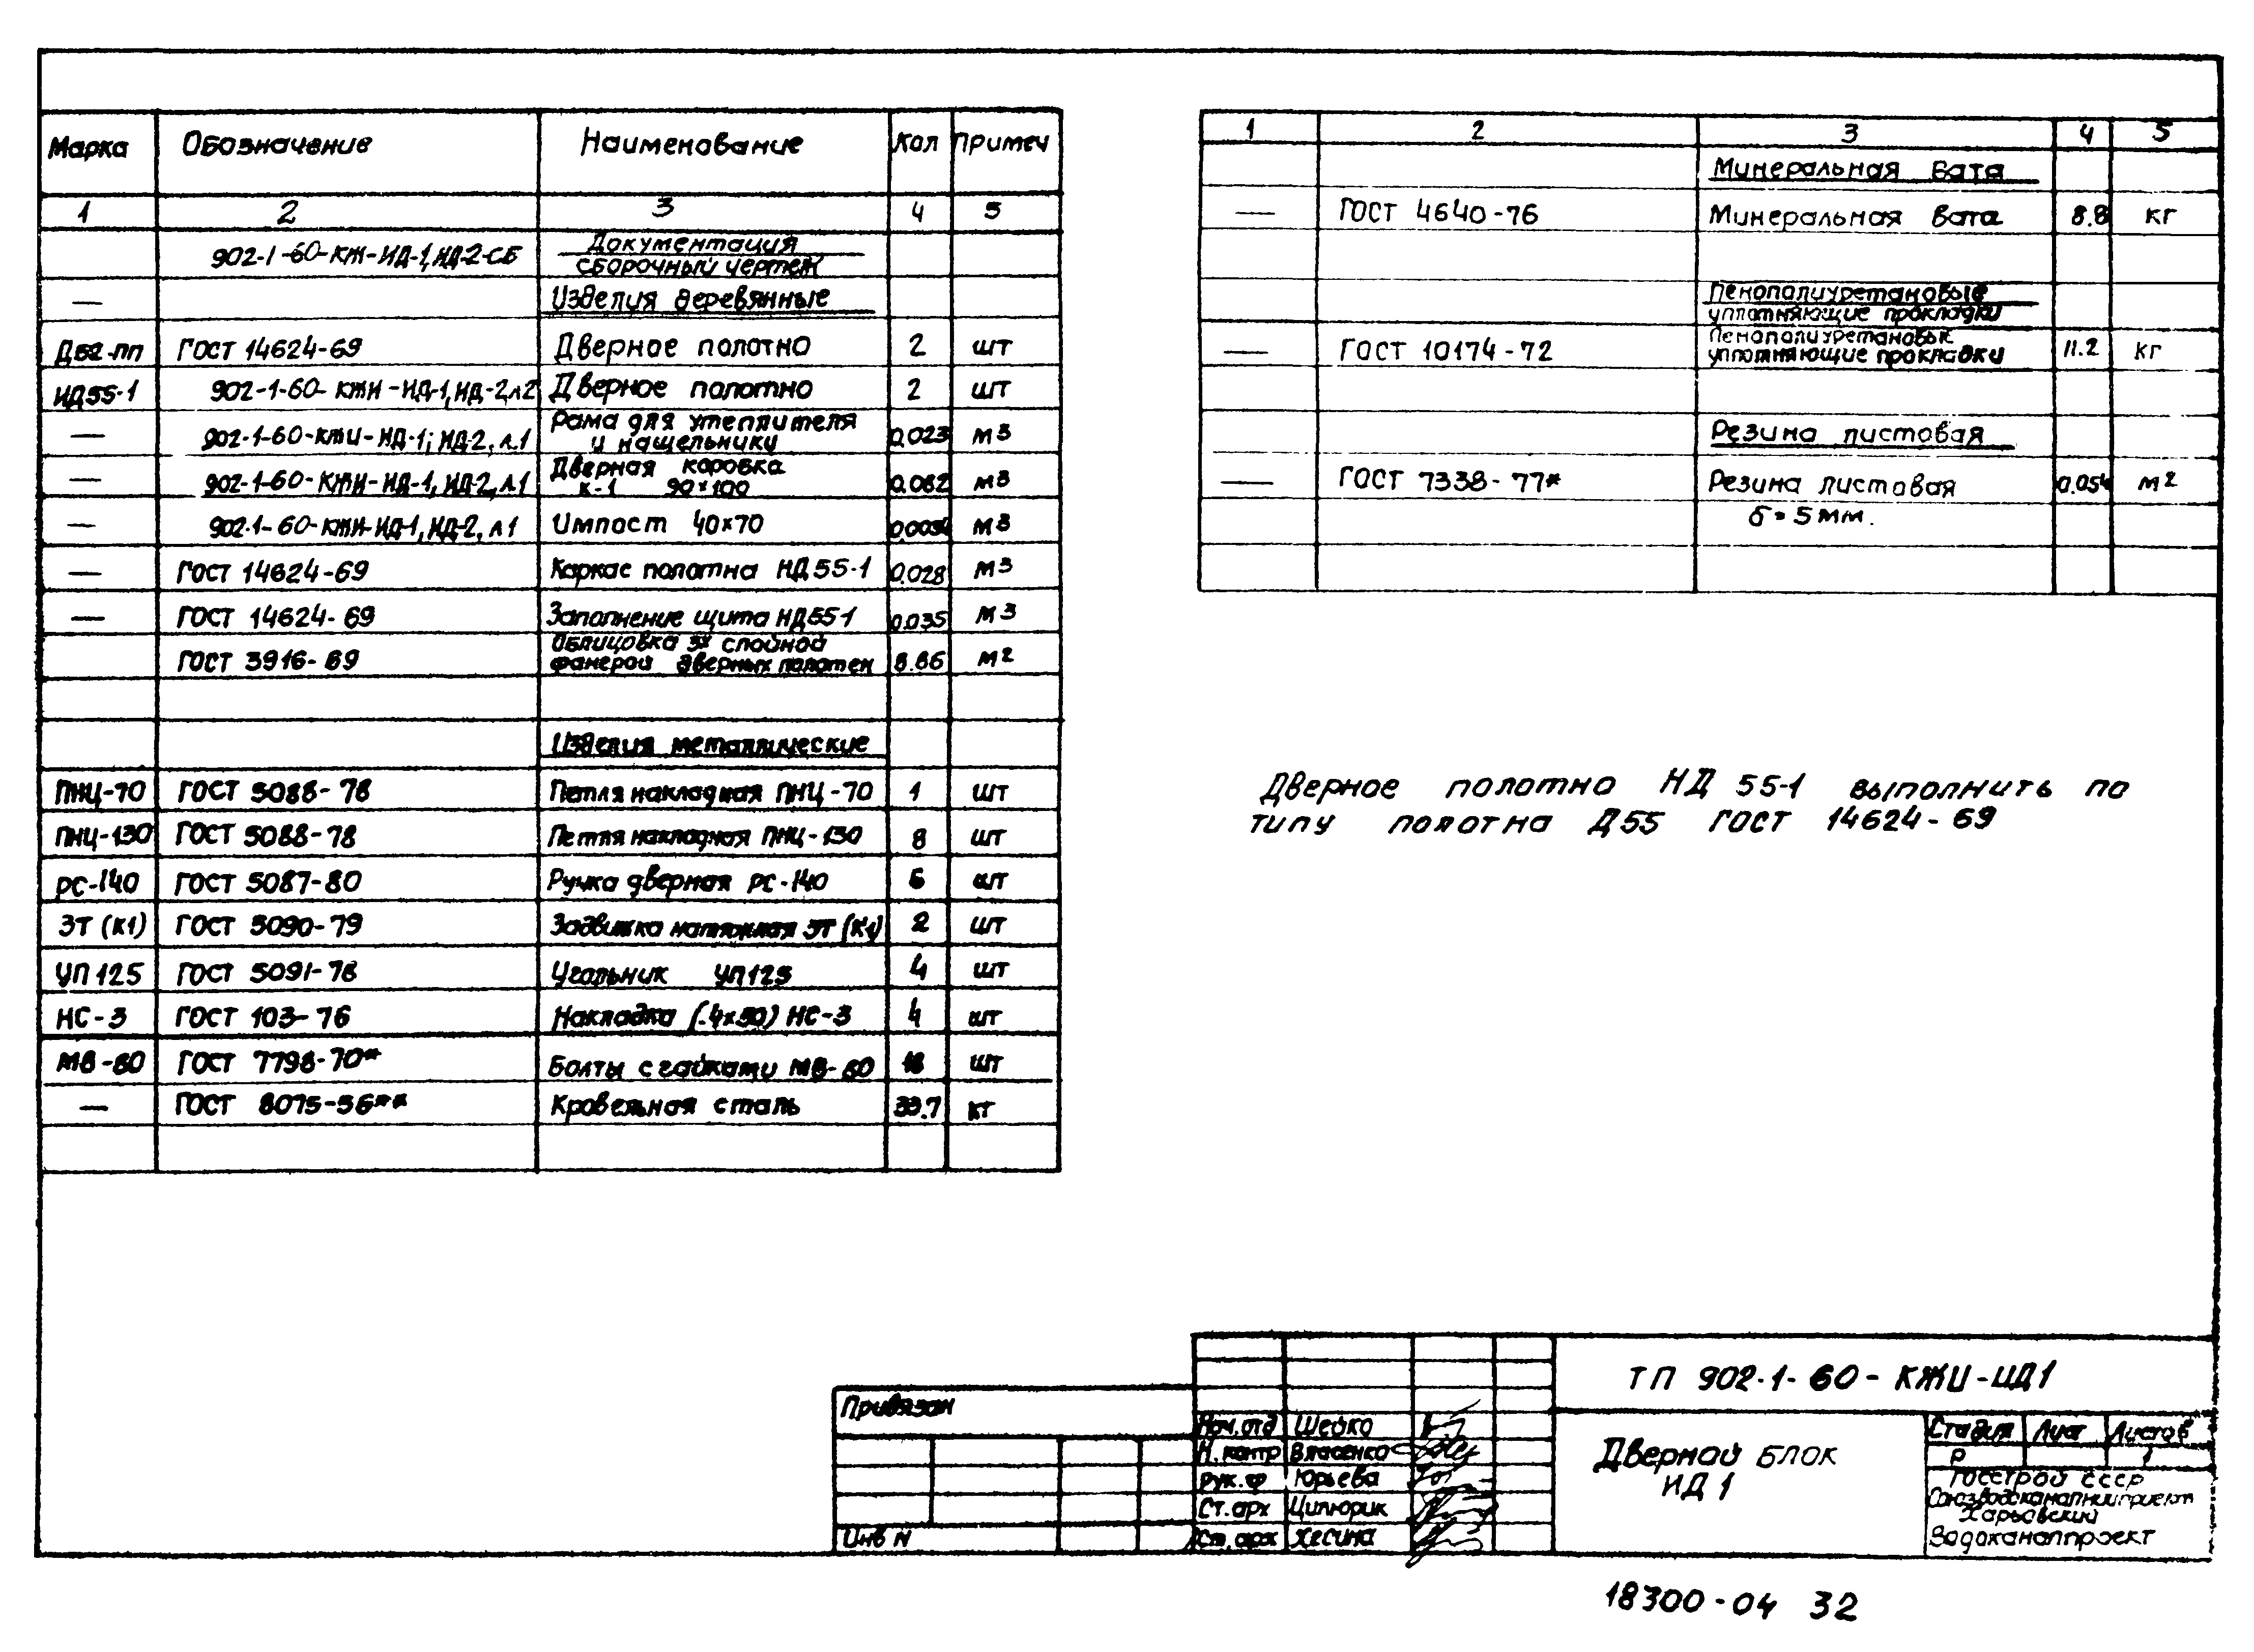 Марка Обозначение Наименование Кол Примеч
1 2 3 4 5
902-1-60-КЖ-ИД-1, ИД-2-СБ Документация
сборочный чертеж
— Изделия деревянные
Д52-пп ГОСТ 14624-69 Дверное полотно 2 шт
ИД55-1 902-1-60-КЖИ-ИД-1, ИД-2, л2 Дверное полотно 2 шт
Рама для утеплителя
— 902-1-60-КЖИ-ИД-1; ИД-2, л.1 и нащельники 0.023 м3
Дверная коровка
— 902-1-60-КЖИ-ИД-1, ИД-2, л.1 к-1 90×100 0.082 м3
— 902-1-60-КЖИ-ИД-1, ИД-2, л1 Импост 40×70 м3
— ГОСТ 14624-69 Каркас полотна НД55-1 0.028 м3
— ГОСТ 14624-69 Заполнение щита НД55-1 0.035 м3
Облицовка 3х слойной
ГОСТ 3916-69 фанерой дверных полотен 8.86 м2
Изделия металлические
ПНЦ-70 ГОСТ 5088-78 Петля накладная ПНЦ-70 1 шт
ПНЦ-130 ГОСТ 5088-78 Петля накладная ПНЦ-130 8 шт
РС-140 ГОСТ 5087-80 Ручка дверная РС-140 6 шт
ЗТ (К1) ГОСТ 5090-79 Задвижка натяжная ЗТ (К1) 2 шт
УП 125 ГОСТ 5091-78 Угольник УП125 4 шт
НС-3 ГОСТ 103-76 Накладка (-4×50) НС-3 4 шт
М8-80 ГОСТ 7798-70* Болты с гайками М8-80 18 шт
— ГОСТ 8075-56** Кровельная сталь 33.7 кг
1 2 3 4 5
Минеральная вата
— ГОСТ 4640-76 Минеральная вата 8.8 кг
Пенополиуретановые
уплотняющие прокладки
Пенополиуретановые
— ГОСТ 10174-72 уплотняющие прокладки 11.2 кг
Резина листовая
— ГОСТ 7338-77* Резина листовая 0.054 м2
б=5мм.
Дверное полотно НД 55-1 выполнить по
типу полотна Д55 ГОСТ 14624-69
Привязан
Инв N
Нач.отд Шейко
Н.контр Власенко
рук.гр Юрьева
Ст.арх Цилюрик
Ст.арх Хесина
ТП 902-1-60-КЖИ-ИД1
Дверной блок
ИД 1
Стадия Лист Листов
Р 1
Госстрой СССР
Союзводоканалниипроект
Харьковский
Водоканалпроект
18300-04 32